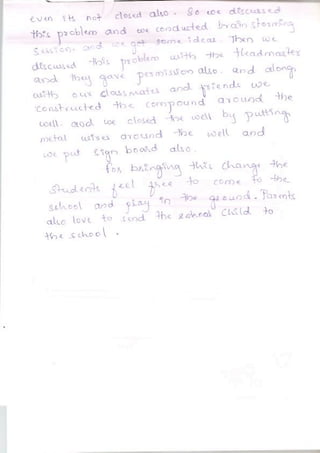 even its not closed also. So we discussed
this problem and we conducted brain storming
session. and we got some ideas. Then we
discussed this problem with the Headmaster
and they gave permission also. and along
with our classmates and friends we
constructed the compound around the
well. and we closed the well by putting
metal wires around the well and
we put sign board also.
for bringing this change the
students feel free to come to the
school and play in the ground. Parents
also love to send the school child to
the school.